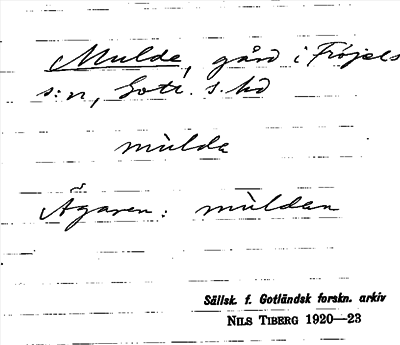 Mulde, gård i Fröjels
s:n, Gotl. s. hd
mùlda
Ägaren: mùldan
Sällsk. f. Gotländsk forskn. arkiv
NILS TIBERG 1920—23